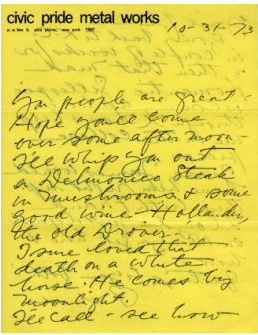 civic pride metal works
p. o. box 4, pine plains, new york 12567
10-31-73
You people are great
Hope you'll come
over some afternoon-
I'll whip you out
a Delmonico Steak
in mushrooms & some
good wine - Hollander,
the old Drover -
I sure loved that
death on a white
horse. He comes by
moonlight.
I'll call - see how